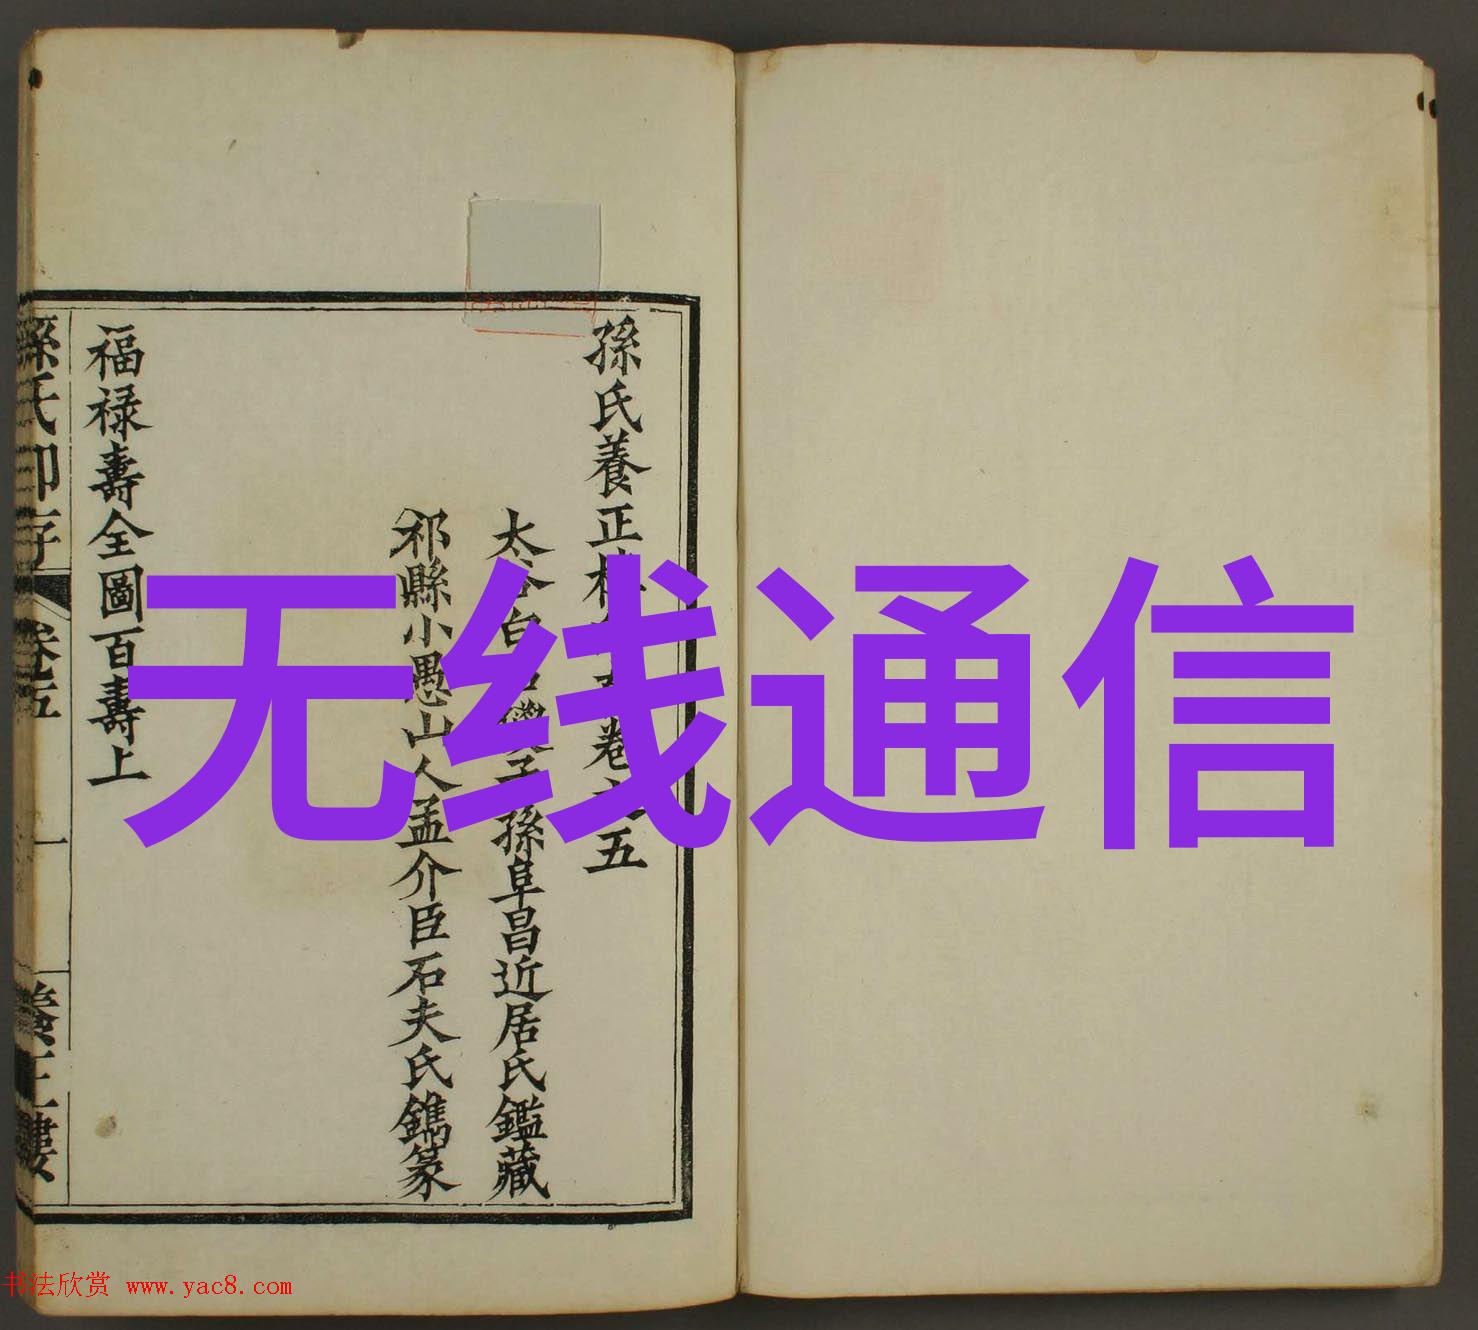 孫氏養正樓印存卷之五
太谷白燕子孫阜昌近居氏鑑藏
祁縣小愚山人孟介臣石夫氏鐫篆
福祿壽全圖百壽上
孫氏印存 卷五 一 養正樓
无线通信
书法欣赏 www.yac8.com